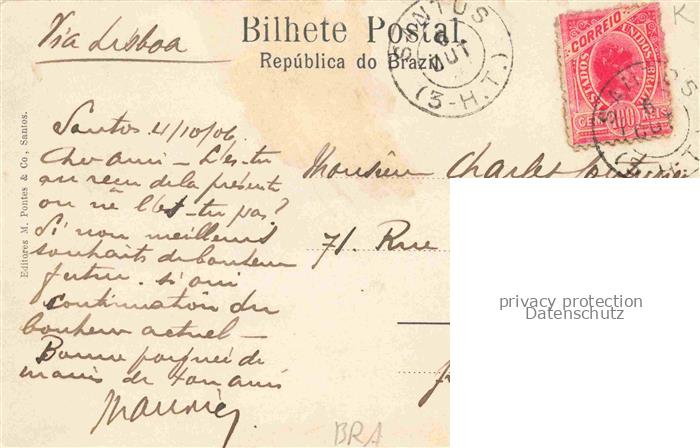 Via Lisboa
Bilhete Postal
República do Brazil
SANTOS
6 OUT
(3-H.T.)
CORREIO
ESTADOS UNIDOS BRAZIL
100
K
Editores M. Pontes & Co, Santos.
Santos 4/10/06.
Cher ami – L'es-tu
au reçu de la présente
ou ne l'es-tu pas?
Si non meilleurs
souhaits de bonheur
futur. si oui
continuation du
bonheur actuel –
Bonne poignée de
mains de ton ami
Maurice
Monsieur Charles
71. Rue
privacy protection
Datenschutz
BRA